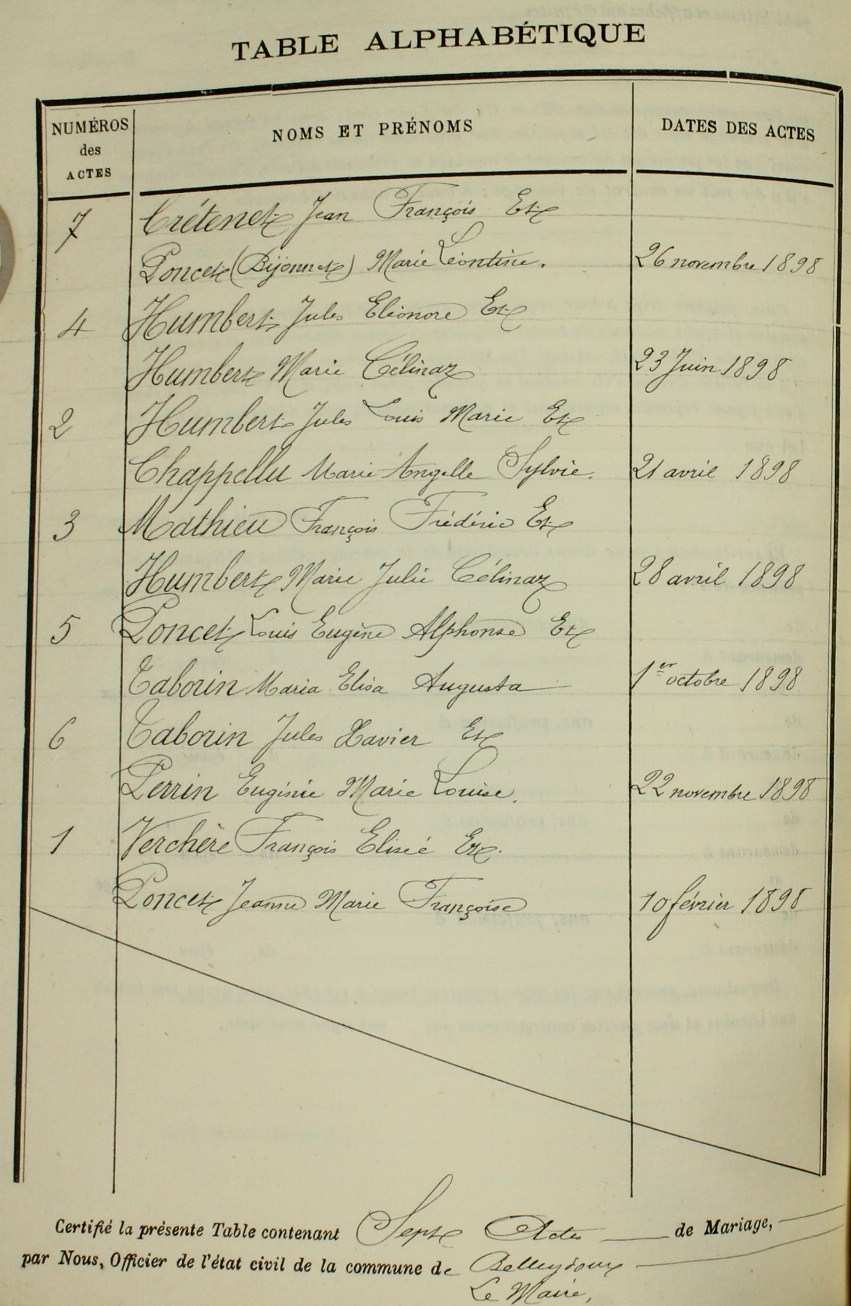 TABLE ALPHABÉTIQUE
NUMÉROS des ACTES NOMS ET PRÉNOMS DATES DES ACTES
7 Crétenet Jean François Et
Poncet (Bijonnet) Marie Léontine. 26 novembre 1898
4 Humbert Jules Eléonore Et
Humbert Marie Célinaz 23 Juin 1898
2 Humbert Jules Louis Marie Et
Chappellu Marie Angelle Sylvie. 21 avril 1898
3 Mathieu François Frédéric Et
Humbert Marie Julie Célinaz 28 avril 1898
5 Poncet Louis Eugène Alphonse Et
Taborin Maria Elisa Augusta 1er octobre 1898
6 Taborin Jules Xavier Et
Perrin Eugénie Marie Louise. 22 novembre 1898
1 Verchère François Elisée Et.
Poncet Jeanne Marie Françoise 10 février 1898
Certifié la présente Table contenant Sept Actes de Mariage,
par Nous, Officier de l'état civil de la commune de Belleydoux
Le Maire,